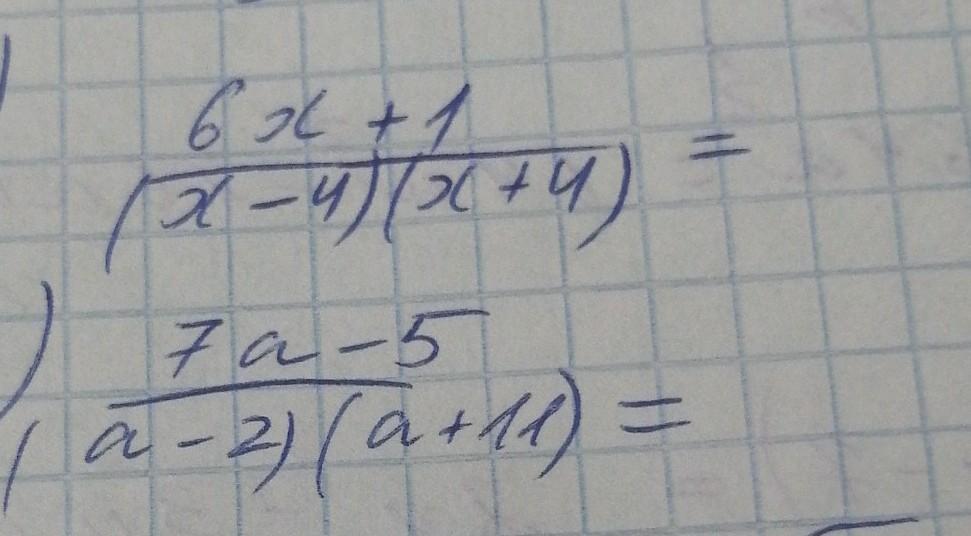 6x + 1
(x - 4)(x + 4) =
) 7a - 5
(a - 2)(a + 11) =